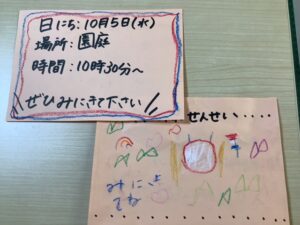 日にち:10月5日(水)
場所:園庭
時間:10時30分～
ぜひみにきて下さい
せんせい....
みにき
てね